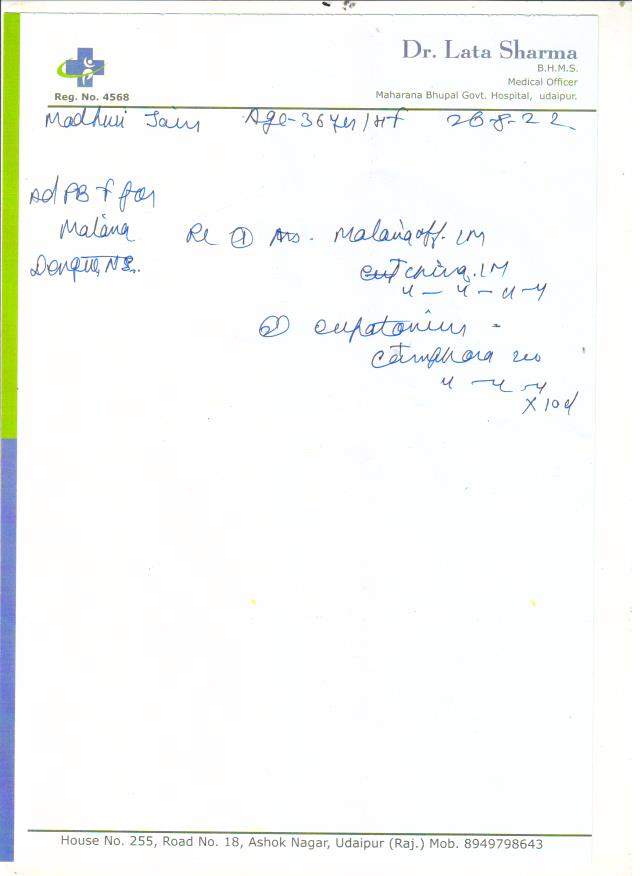 Dr. Lata Sharma
B.H.M.S.
Medical Officer
Maharana Bhupal Govt. Hospital, udaipur.
Reg. No. 4568
Madhuri Jain Age-36 yr/Hf 28-8-22
Ad PBF for
Malaria
Dengue, NS
Rx ① Malaria off. 1M
china. 1M
4 - 4 - 4 - 4
② eupatorium -
Camphora 200
4 - 4 - 4
X 10d
House No. 255, Road No. 18, Ashok Nagar, Udaipur (Raj.) Mob. 8949798643